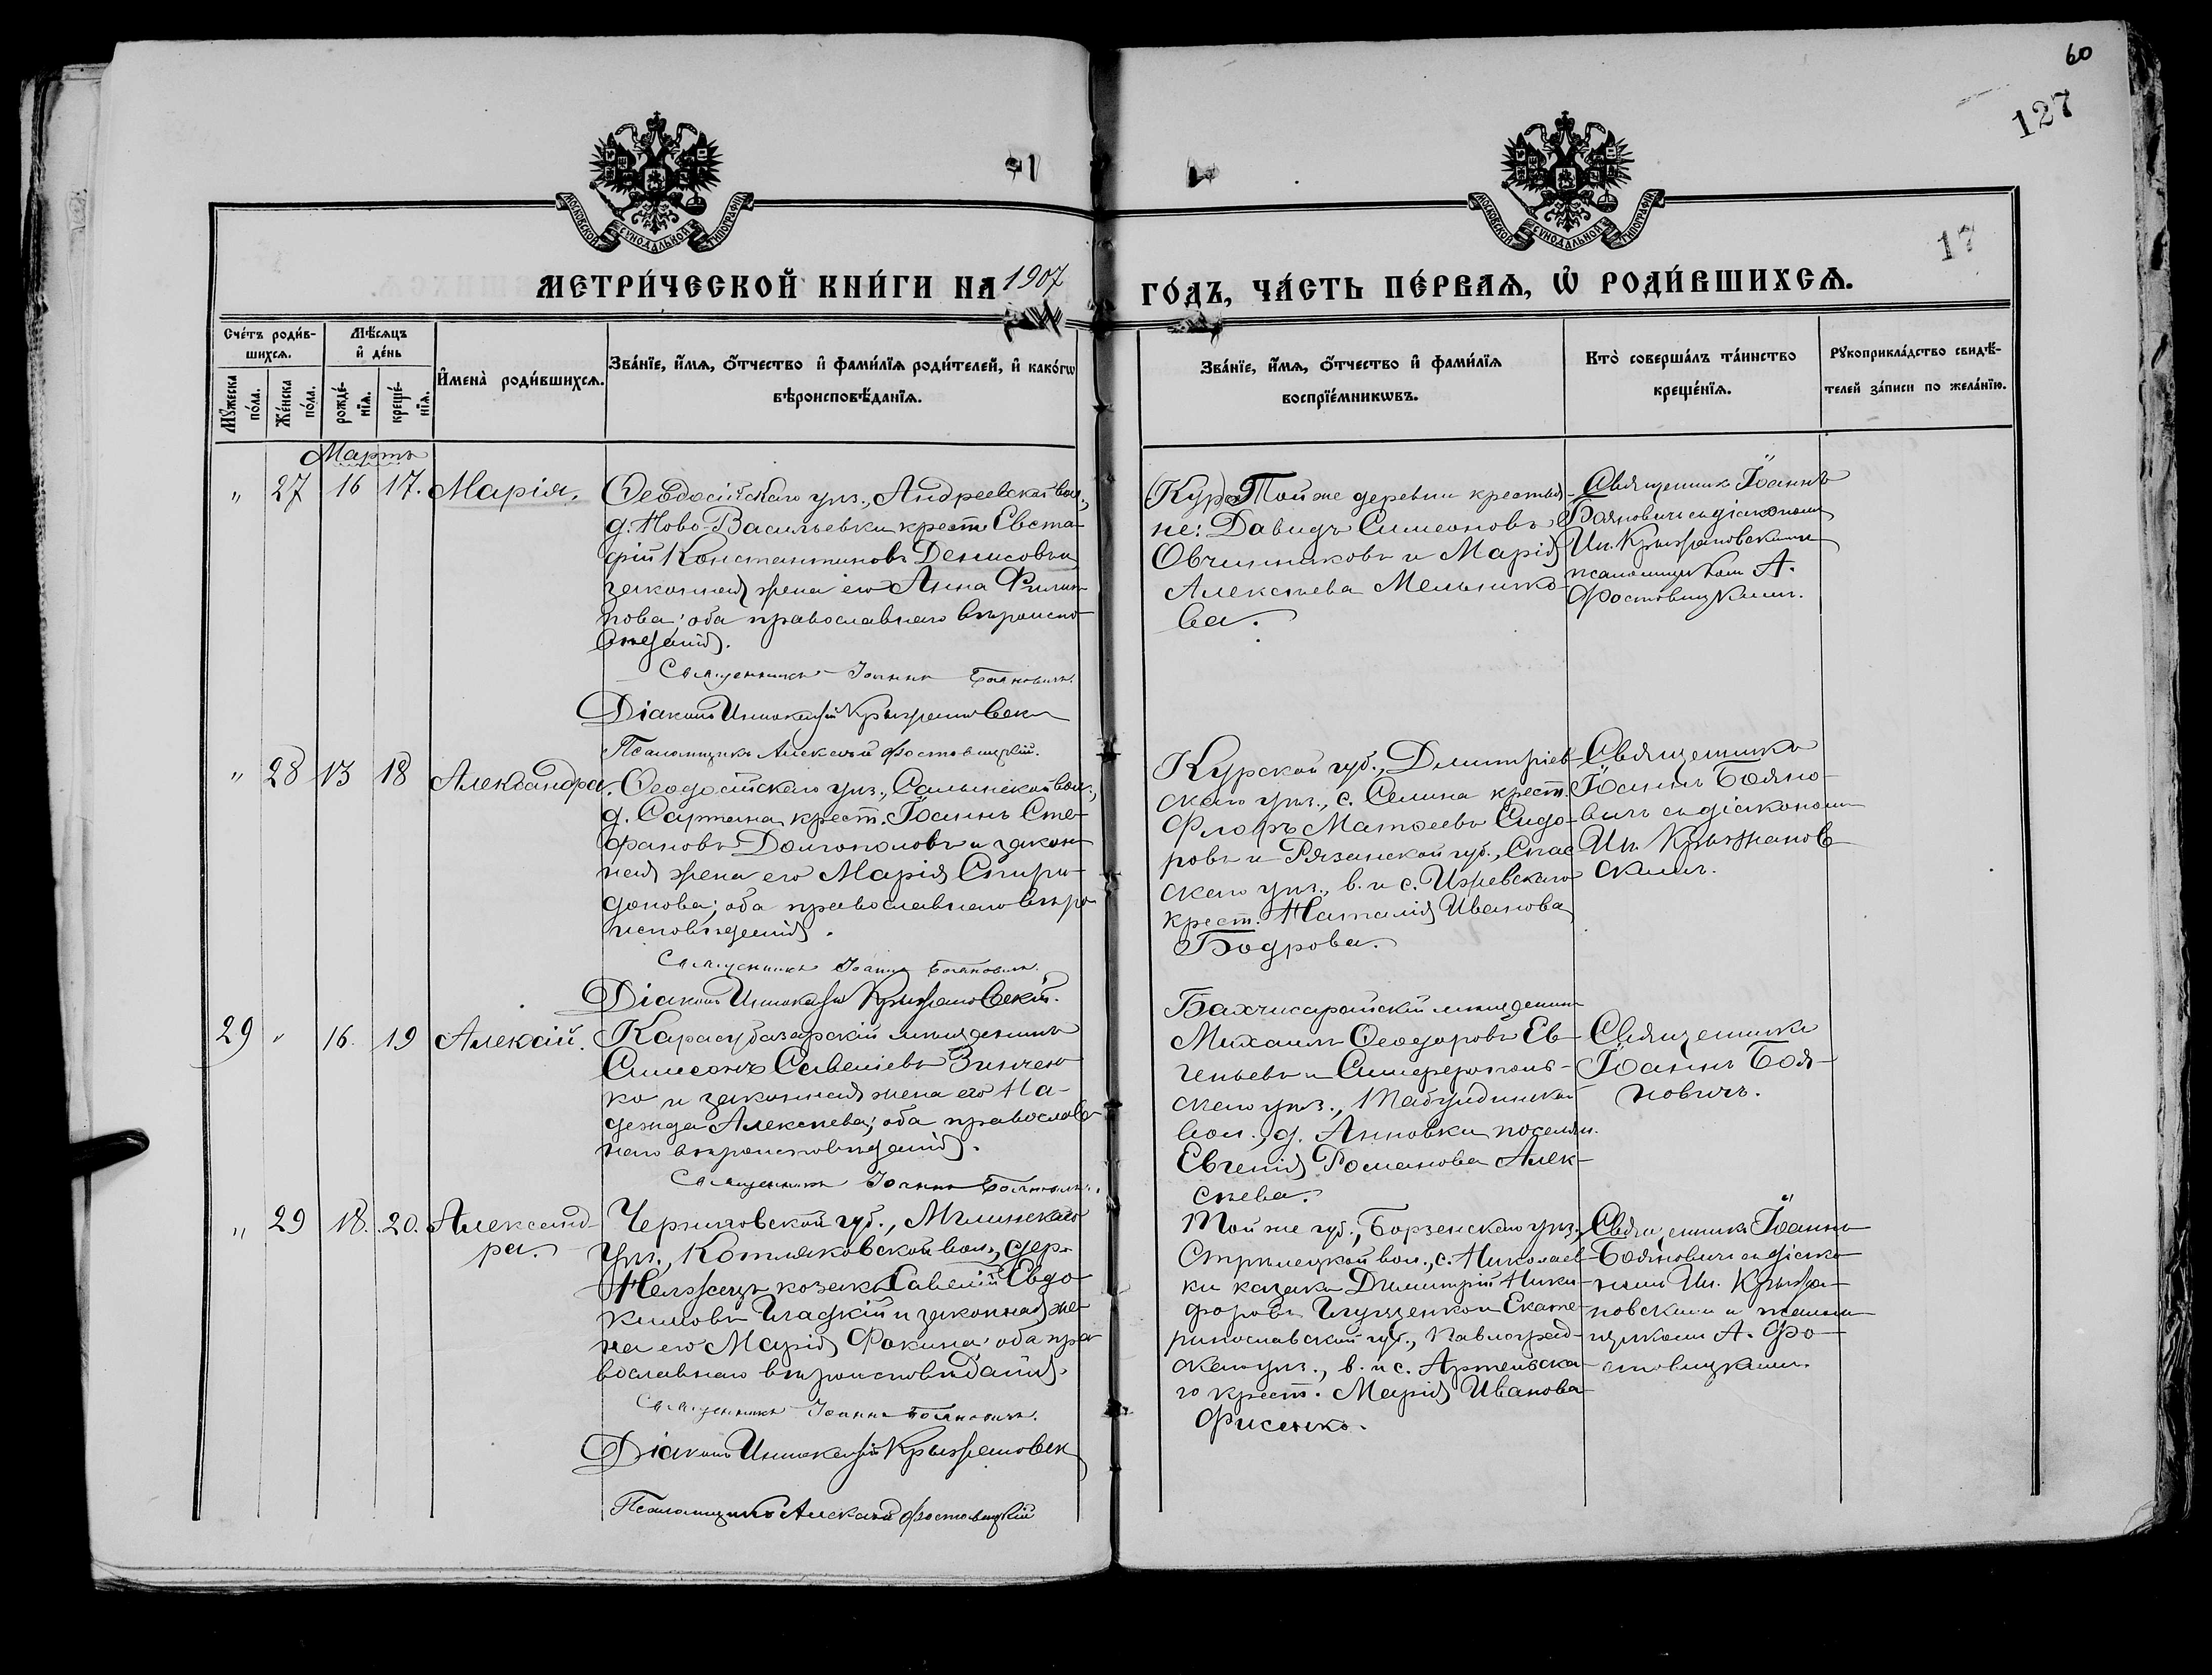 60
127
17
МОСКОВСКОЙ СѴНОДАЛЬНОЙ ТИПОГРАФІИ
МОСКОВСКОЙ СѴНОДАЛЬНОЙ ТИПОГРАФІИ
МЕТРИ́ЧЕСКОЙ КНИ́ГИ НА 1907
ГО́ДЪ, ЧА́СТЬ ПЕ́РВАѦ, Ѡ҆ РОДИ́ВШИХСѦ.
Сче́тъ роди́в-
шихсѧ.
Мꙋ́жеска по́ла.
Же́нска по́ла.
Мѣ́сѧцъ
и҆ де́нь
рожде́-
нїѧ.
креще́-
нїѧ.
И҆мена̀ роди́вшихсѧ.
Зва́нїе, и҆́мѧ, ѻ҆́тчество и҆ фами́лїѧ роди́телей, и҆ како́гѡ
вѣроисповѣ́данїѧ.
Зва́нїе, и҆́мѧ, ѻ҆́тчество и҆ фами́лїѧ
воспрїе́мникѡвъ.
Кто̀ соверша́лъ та́инство
креще́нїѧ.
Рꙋкоприкла́дство свидѣ́-
телей за́писи по жела́нїю.
Мартъ
" 27 16 17. Марія.
Ѳеодосійскаго уѣз., Андреевской вол.,
д. Ново-Васильевки крест. Евста-
фій Константиновъ Денисовъ и
законная жена его Анна Филип-
пова; оба православнаго вѣроиспо-
вѣданія.
Священникъ Іоаннъ Бояновичъ.
Діаконъ Иннокентій Крыжановскій
Псаломщикъ Алексѣй Фостовицкій.
Той же деревни крестья-
не: Давидъ Симеоновъ
Овчинниковъ и Марія
Алексѣева Мельнико-
ва.
Священникъ Іоаннъ
Бояновичъ съ діакономъ
Ин. Крыжановскимъ и
псаломщикомъ А.
Фостовицкимъ.
" 28 13 18 Александра.
Ѳеодосійскаго уѣз., Салынской вол.,
д. Сартана, крест. Іоаннъ Сте-
фановъ Долгополовъ и закон-
ная жена его Марія Спири-
донова; оба православнаго вѣро-
исповѣданія.
Священникъ Іоаннъ Бояновичъ.
Діаконъ Иннокентій Крыжановскій.
Курской губ., Димитріев-
скаго уѣз., с. Селина крест.
Флоръ Матѳеевъ Сидо-
ровъ и Рязанской губ., Спас-
скаго уѣз., в. и с. Ижевскаго
крест. Наталія Иванова
Бодрова.
Священникъ
Іоаннъ Бояно-
вичъ съ діакономъ
Ин. Крыжанов-
скимъ.
29 " 16. 19 Алексій.
Карасубазарскій мѣщанинъ
Симеонъ Савельевъ Зинчен-
ко и законная жена его На-
дежда Алексѣева; оба православ-
наго вѣроисповѣданія.
Священникъ Іоаннъ Бояновичъ.
Бахчисарайскій мѣщанинъ
Михаилъ Ѳеодоровъ Ев-
геньевъ и Симферополь-
скаго уѣз., Табулдинской
вол., д. Анновки поселян.
Евгенія Романова Алек-
сѣева.
Священникъ
Іоаннъ Боя-
новичъ.
" 29 18. 20. Александ-
ра.
Черниговской губ., Мглинскаго
уѣз., Котляковской вол., дер.
козакъ Савелій Евдо-
кимовъ Гладкій и законная же-
на его Марія Фокина; оба пра-
вославнаго вѣроисповѣданія.
Священникъ Іоаннъ Бояновичъ.
Діаконъ Иннокентій Крыжановскій
Псаломщикъ Алексѣй Фостовицкій
Той же губ., Борзенскаго уѣз.,
вол., с. Николаев-
ки казакъ Димитрій Ники-
форовъ Глущенко и Екате-
ринославской губ., Павлоград-
скаго уѣз., в. и с. Артельска-
го крест. Марія Иванова
Фисенко.
Священникъ Іоаннъ
Бояновичъ съ діако-
номъ Ин. Крыжа-
новскимъ и псалом-
щикомъ А. Фо-
стовицкимъ.